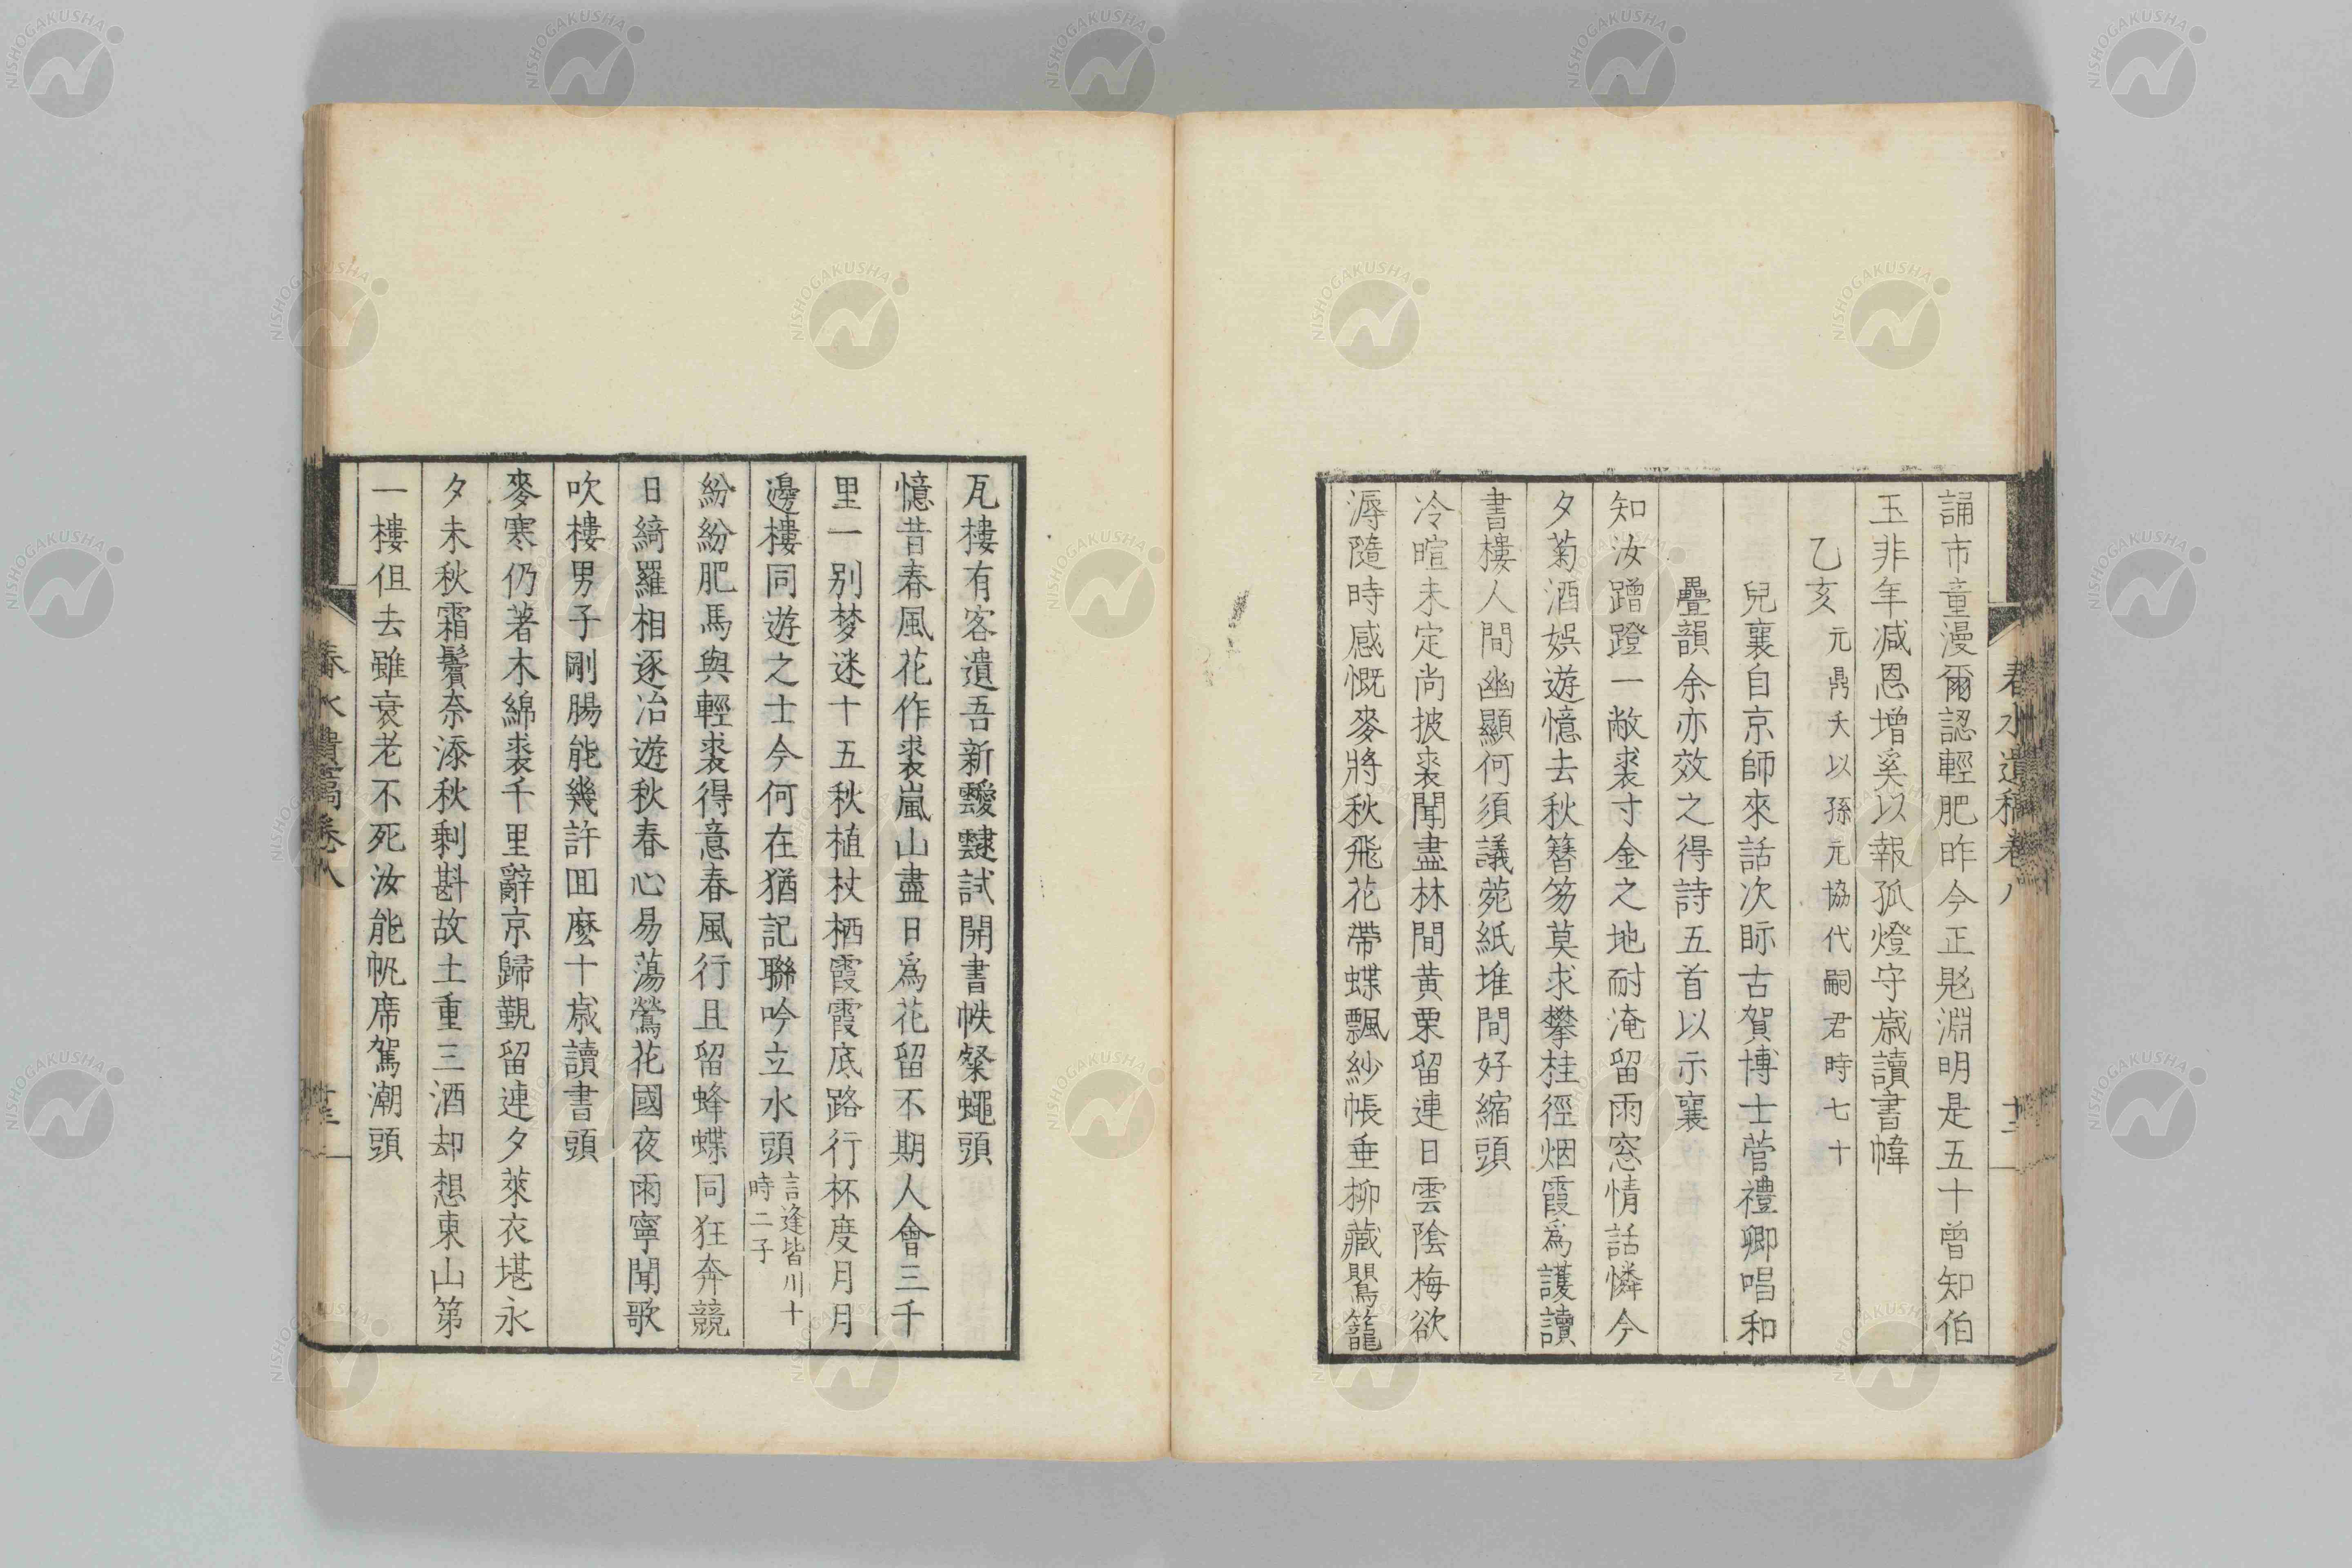 春水遺稿卷八
誦市童漫爾認輕肥昨今正愍淵明是五十曾知伯
玉非年减恩增奚以報孤燈守歳讀書幃
乙亥元鼎夭以孫元協代嗣君時七十
兒襄自京師來話次眎古賀博士菅禮卿唱和
疊韻余亦效之得詩五首以示襄
知汝蹭蹬一敝裘寸金之地耐淹留雨窓情話憐今
夕菊酒娯遊憶去秋簪笏莫求攀桂徑烟霞爲護讀
書樓人間幽顯何須議蒓紙堆間好縮頭
冷暄未定尚披裘聞盡林間黄栗留連日雲陰梅欲
溽隨時感慨麥將秋飛花帶蝶飄紗帳垂柳藏鸎籠
瓦樓有客遺吾新靉靆試開書帙粲蠅頭
憶昔春風花作裘嵐山盡日爲花留不期人會三千
里一别梦迷十五秋植杖栖霞霞底路行杯度月月
邊樓同遊之士今何在猶記聯吟立水頭言逢皆川十
時二子
紛紛肥馬與輕裘得意春風行且留蜂蝶同狂奔競
日綺羅相逐冶遊秋春心易蕩鶯花國夜雨寧聞歌
吹樓男子剛腸能幾許囬麽十歳讀書頭
麥寒仍著木綿裘千里辭京歸覲留連夕萊衣堪永
夕未秋霜鬢奈添秋剩斟故土重三酒却想東山第
一樓伹去雖衰老不死汝能帆席駕潮頭
春水遺稿卷八